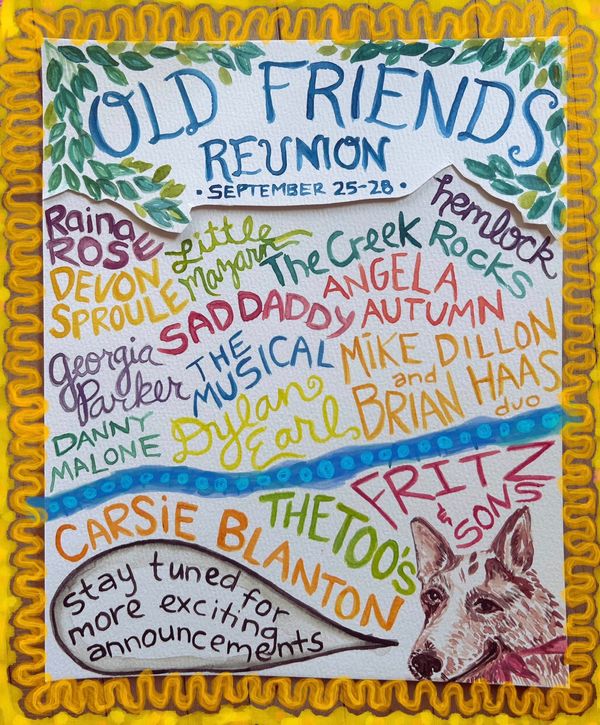 OLD FRIENDS
REUNION
• SEPTEMBER 25-28 •
Raina
ROSE
Little
Mazarn
The Creek Rocks
hemlock
DEVON
SPROULE
SAD DADDY
ANGELA
AUTUMN
Georgia
Parker
THE
MUSICAL
MIKE DILLON
and
BRIAN HAAS
duo
DANNY
MALONE
Dylan
Earl
FRITZ
& SONS
CARSIE BLANTON
THE TOO'S
stay tuned for
more exciting
announcements